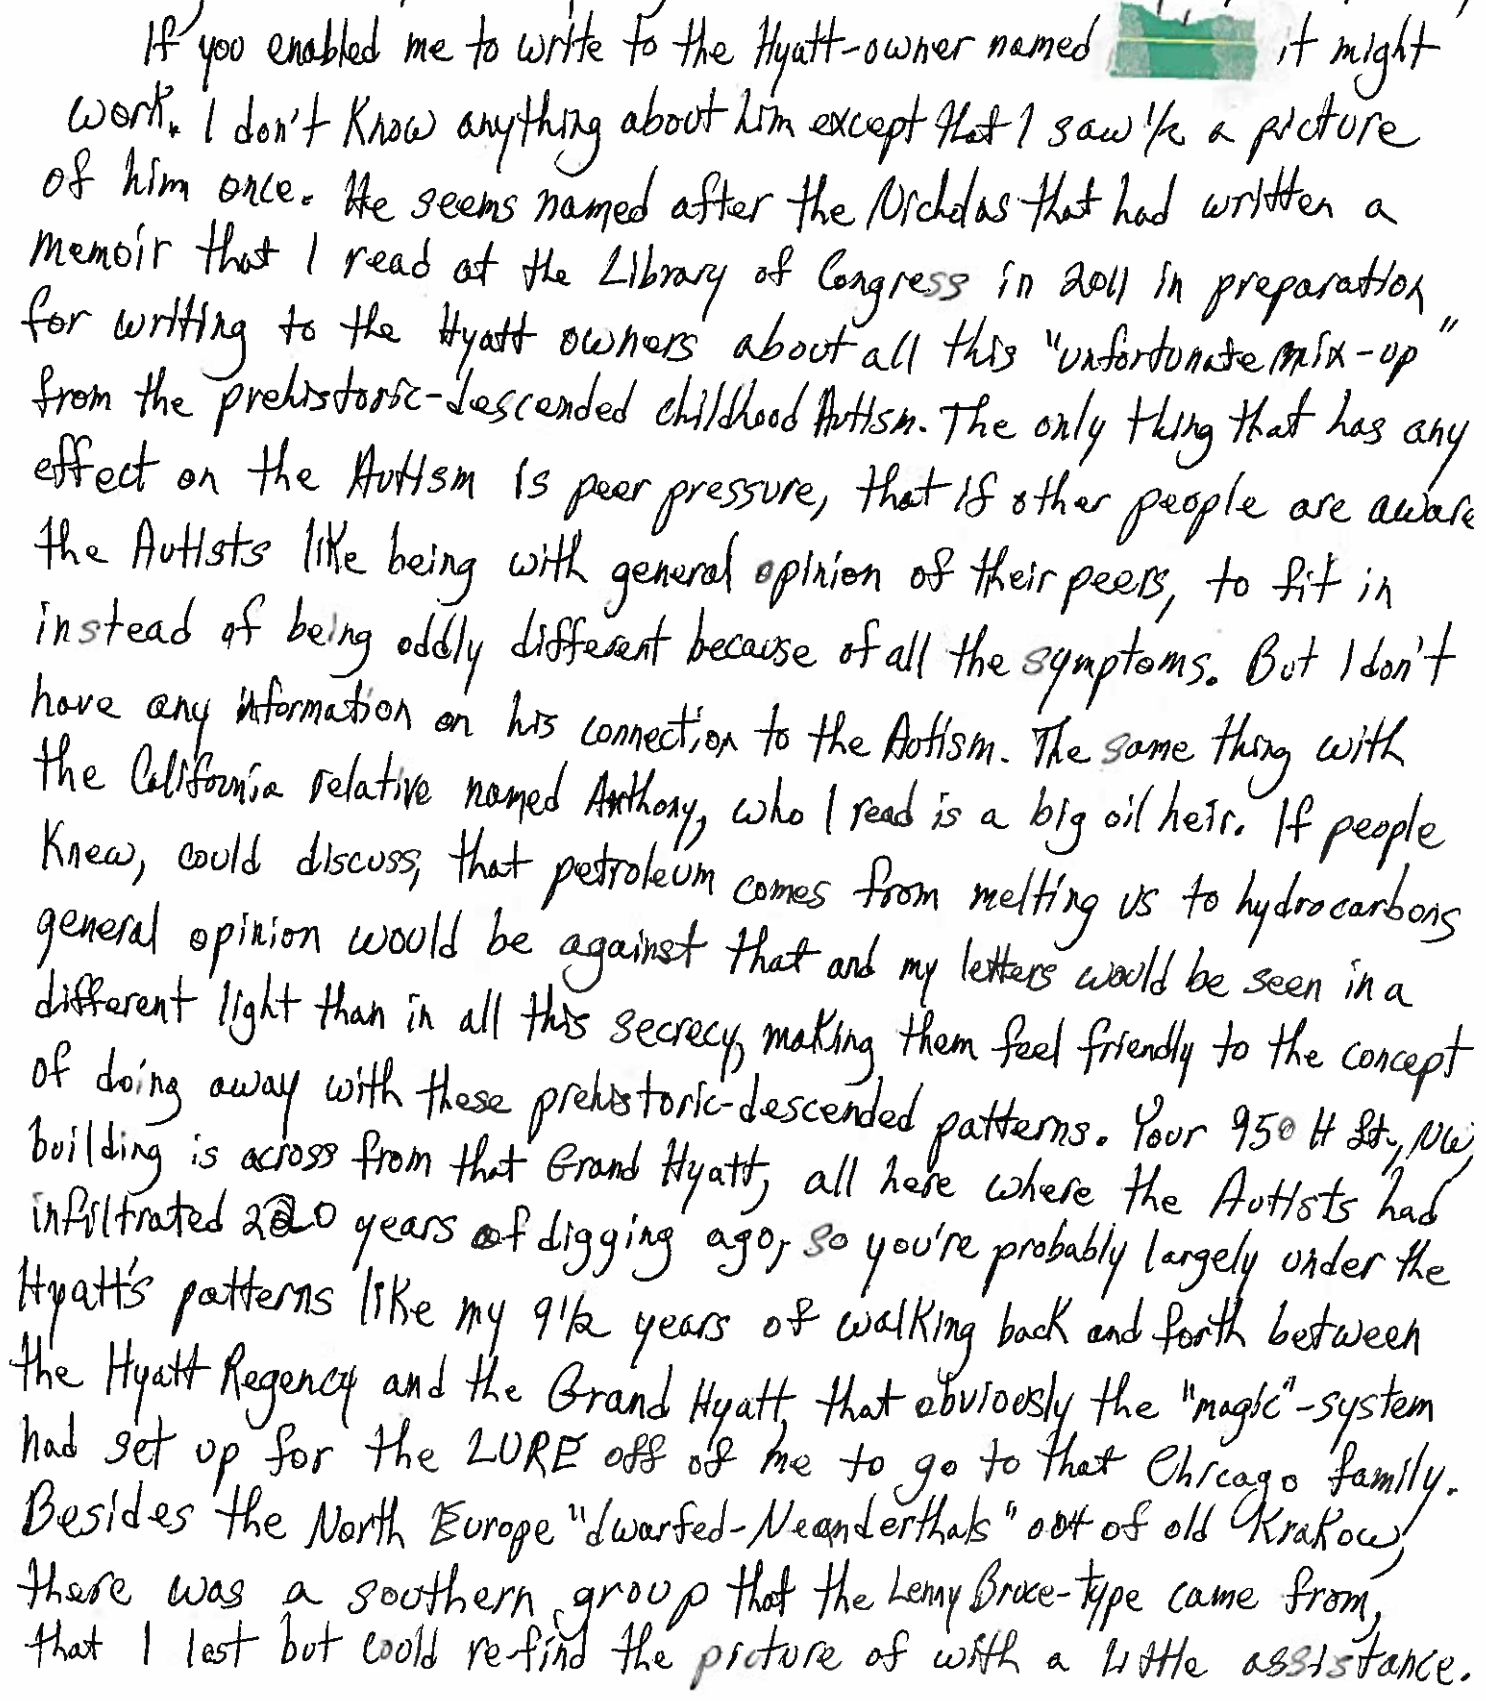 If you enabled me to write to the Hyatt-owner named it might
work. I don't know anything about him except that I saw ½ a picture
of him once. He seems named after the Nicholas that had written a
memoir that I read at the Library of Congress in 2011 in preparation
for writing to the Hyatt owners about all this "unfortunate mix-up"
from the prehistoric-descended childhood Autism. The only thing that has any
effect on the Autism is peer pressure, that if other people are aware
the Autists like being with general opinion of their peers, to fit in
instead of being oddly different because of all the symptoms. But I don't
have any information on his connection to the Autism. The same thing with
the California relative named Anthony, who I read is a big oil heir. If people
knew, could discuss, that petroleum comes from melting us to hydrocarbons
general opinion would be against that and my letters would be seen in a
different light than in all this secrecy, making them feel friendly to the concept
of doing away with these prehistoric-descended patterns. Your 950 H St., NW,
building is across from that Grand Hyatt, all here where the Autists had
infiltrated 220 years of digging ago, so you're probably largely under the
Hyatt's patterns like my 9½ years of walking back and forth between
the Hyatt Regency and the Grand Hyatt, that obviously the "magic"-system
had set up for the LURE off of me to go to that Chicago family.
Besides the North Europe "dwarfed-Neanderthals" out of old Krakow,
there was a southern group that the Lenny Bruce-type came from,
that I lost but could re-find the picture of with a little assistance.